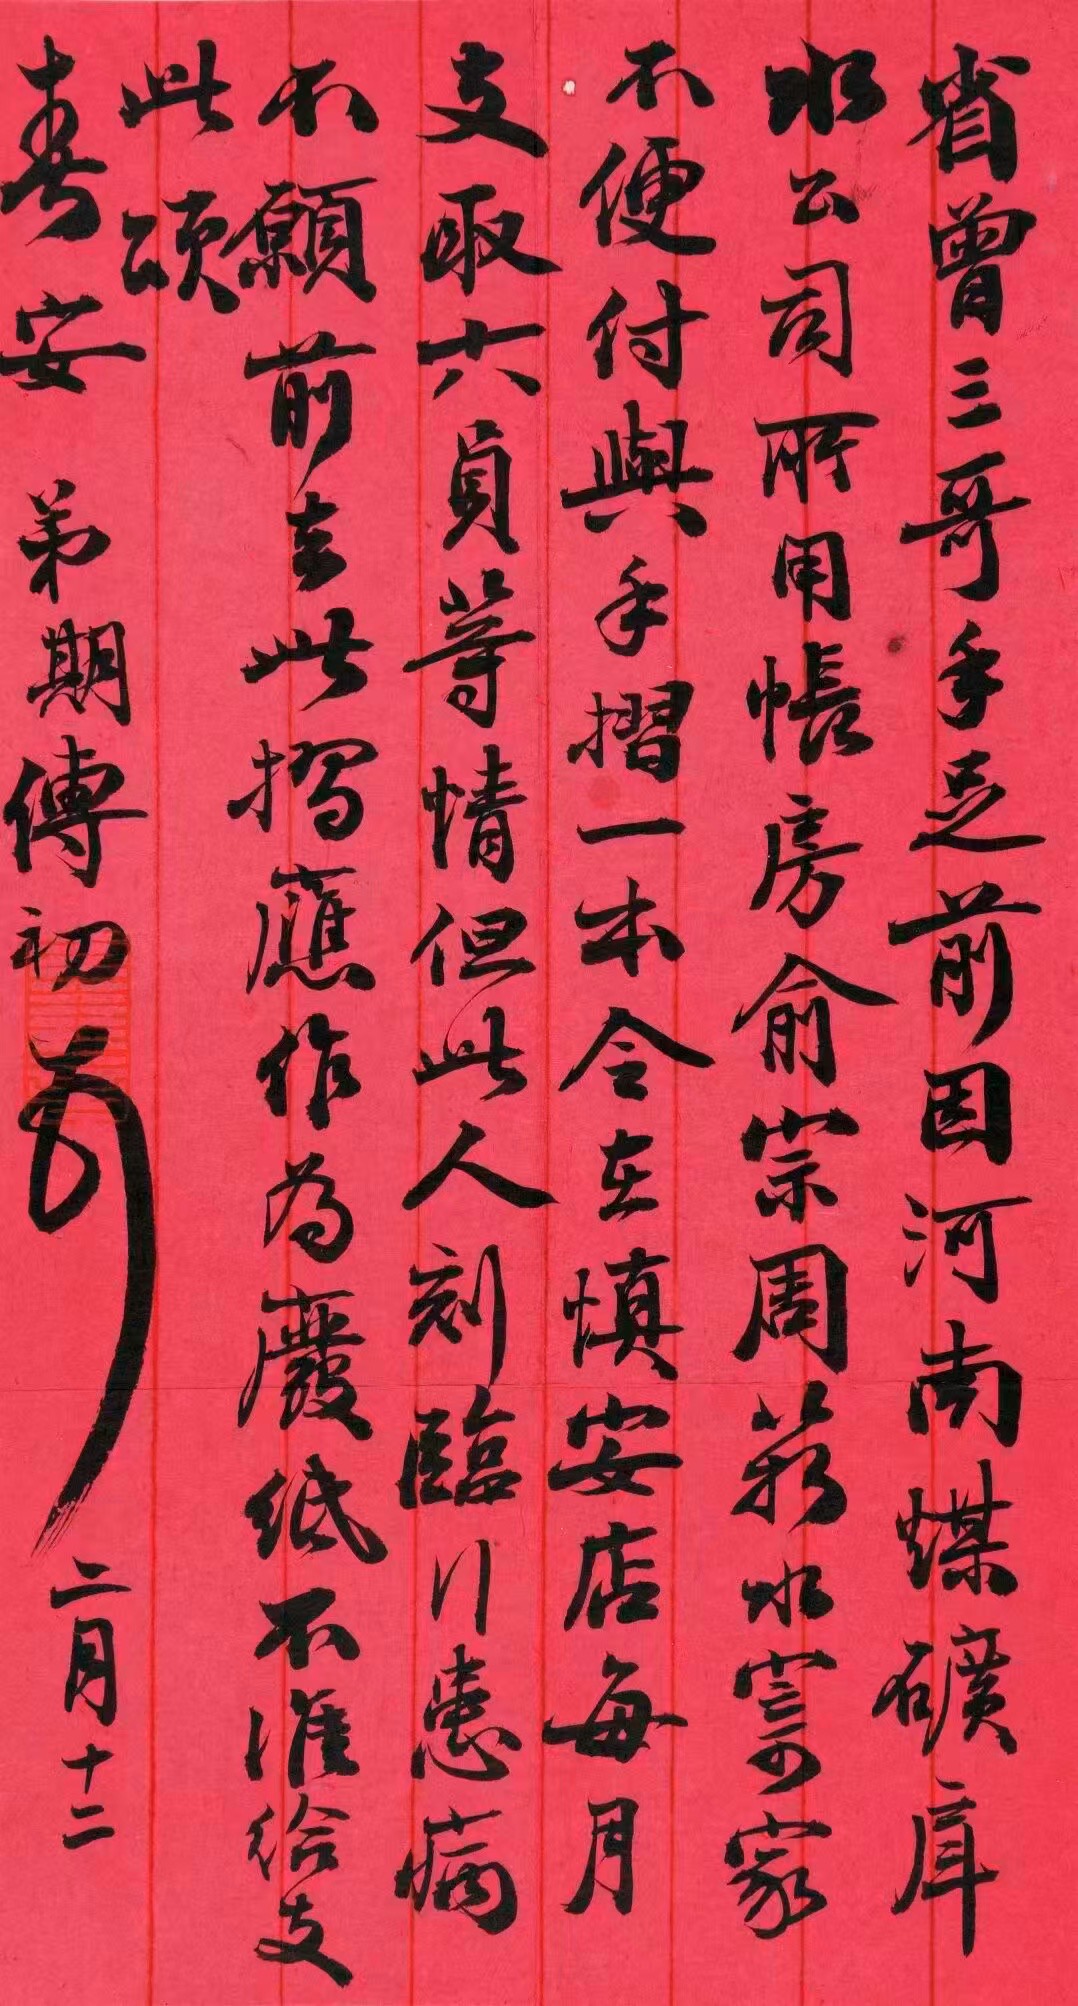 省曾三哥手足前因河南煤礦庫
水公司所用帳房俞宗周薪水寄家
不便付與手摺一本令在慎安店每月
支取六員等情但此人刻臨行患病
不願前去此摺應作為廢紙不準給支
此頌
春安 弟期傅初
二月十二